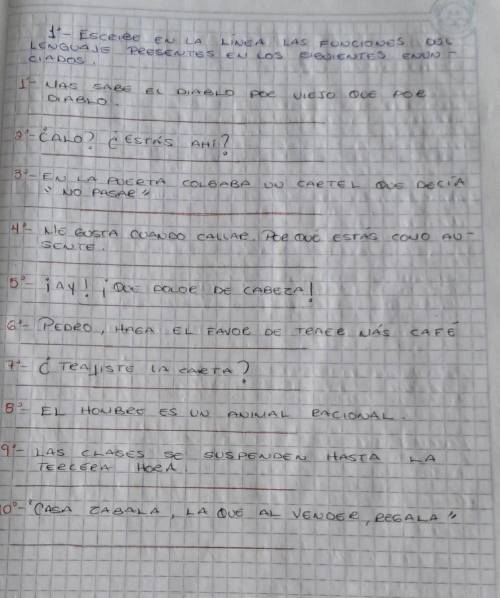 1º- ESCRIBE EN LA LÍNEA LAS FUNCIONES DEL
LENGUAJE PRESENTES EN LOS SIGUIENTES ENUN-
CIADOS.
1º- MAS SABE EL DIABLO POR VIEJO QUE POR
DIABLO.
2º- ¿ALO? ¿ESTÁS AHÍ?
3º- EN LA PUERTA COLGABA UN CARTEL QUE DECÍA
"NO PASAR".
4º- ME GUSTA CUANDO CALLAR, POR QUE ESTAS COMO AU-
SENTE.
5º- ¡AY! ¡QUE DOLOR DE CABEZA!
6º- PEDRO, HAGA EL FAVOR DE TRAER MÁS CAFÉ
7º- ¿TRAJISTE LA CARTA?
8º- EL HOMBRE ES UN ANIMAL RACIONAL.
9º- LAS CLASES SE SUSPENDEN HASTA LA
TERCERA HORA.
10º- "CASA ZABALA, LA QUE AL VENDER, REGALA"